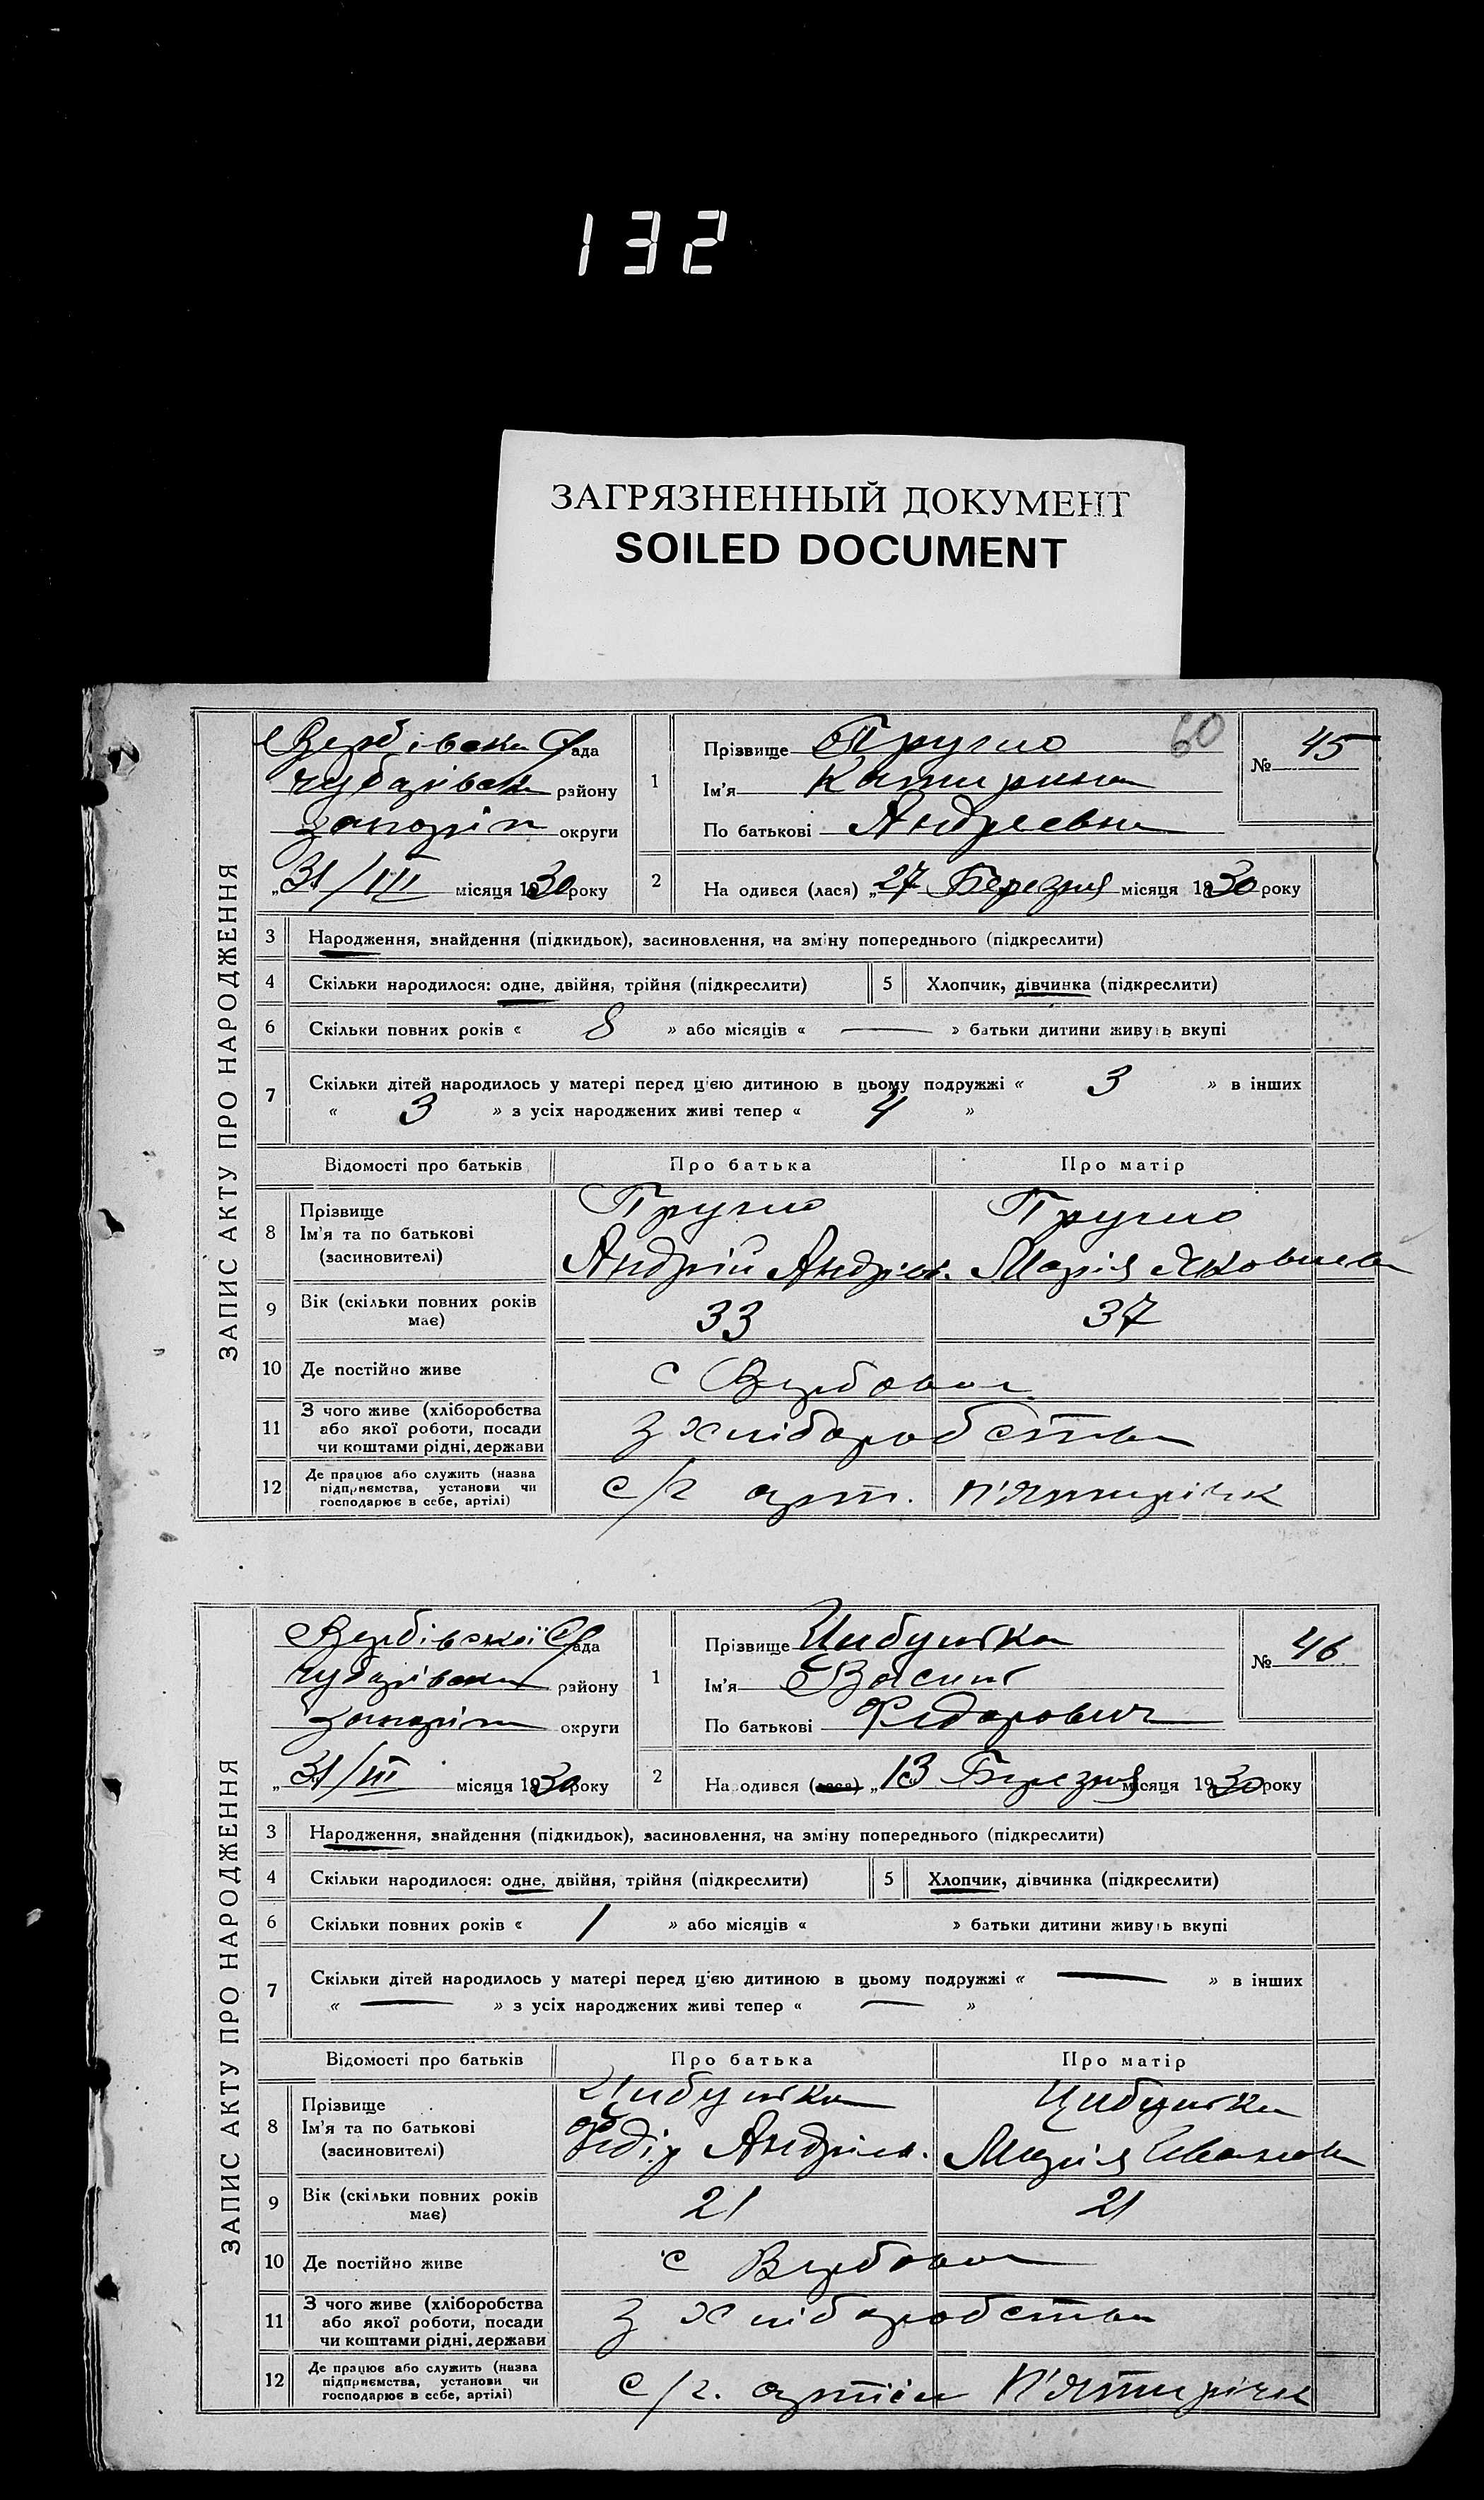 132
ЗАГРЯЗНЕННЫЙ ДОКУМЕНТ
SOILED DOCUMENT
60
ЗАПИС АКТУ ПРО НАРОДЖЕННЯ
Вербівська С/рада
Чубарівськ району
Запоріж округи
„31/III місяця 1930 року
1
Прізвище
Ім'я Катирина
По батькові Андреевна
№ 45
2
На одився (лася) „27 Березня місяця 1930 року
3 Народження, знайдення (підкидьок), засиновлення, на зміну попереднього (підкреслити)
4 Скільки народилося: одне, двійня, трійня (підкреслити) 5 Хлопчик, дівчинка (підкреслити)
6 Скільки повних років « 8 » або місяців « — » батьки дитини живуть вкупі
7 Скільки дітей народилось у матері перед ц'єю дитиною в цьому подружжі « 3 » в інших
« 3 » з усіх народжених живі тепер « 4 »
Відомості про батьків Про батька Про матір
8 Прізвище
Ім'я та по батькові
(засиновителі)
Андрій Андрієв. Марія Яковлевн
9 Вік (скільки повних років має) 33 37
10 Де постійно живе с Вербова
11 З чого живе (хліборобства
або якої роботи, посади
чи коштами рідні, держави
з хліборобства
12 Де працює або служить (назва
підприємства, установи чи
господарює в себе, артілі)
с/г арт. П'ятирічк
ЗАПИС АКТУ ПРО НАРОДЖЕННЯ
Вербівської С/рада
Чубарівськ району
Запоріж округи
„31/III місяця 1930 року
1
Прізвище Цибулька
Ім'я Василь
По батькові Федорович
№ 46
2
На родився (лася) „13 Березня місяця 1930 року
3 Народження, знайдення (підкидьок), засиновлення, на зміну попереднього (підкреслити)
4 Скільки народилося: одне, двійня, трійня (підкреслити) 5 Хлопчик, дівчинка (підкреслити)
6 Скільки повних років « 1 » або місяців « » батьки дитини живуть вкупі
7 Скільки дітей народилось у матері перед ц'єю дитиною в цьому подружжі « — » в інших
« — » з усіх народжених живі тепер « — »
Відомості про батьків Про батька Про матір
8 Прізвище
Ім'я та по батькові
(засиновителі)
Цибулька Цибулька
Федір Андрієв. Марія Іванов
9 Вік (скільки повних років має) 21 21
10 Де постійно живе с Вербова
11 З чого живе (хліборобства
або якої роботи, посади
чи коштами рідні, держави
з хліборобства
12 Де працює або служить (назва
підприємства, установи чи
господарює в себе, артілі)
с/г. артіли П'ятирічк